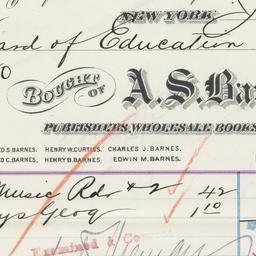 NEW YORK
ard of Education
BOUGHT OF A.S. Bar
PUBLISHERS, WHOLESALE BOOKS
ED S. BARNES. HENRY W. CURTISS. CHARLES J. BARNES.
ED C. BARNES. HENRY B. BARNES. EDWIN M. BARNES.
Music Rdr #2 42
ys Geog 1 10
Examined & Co